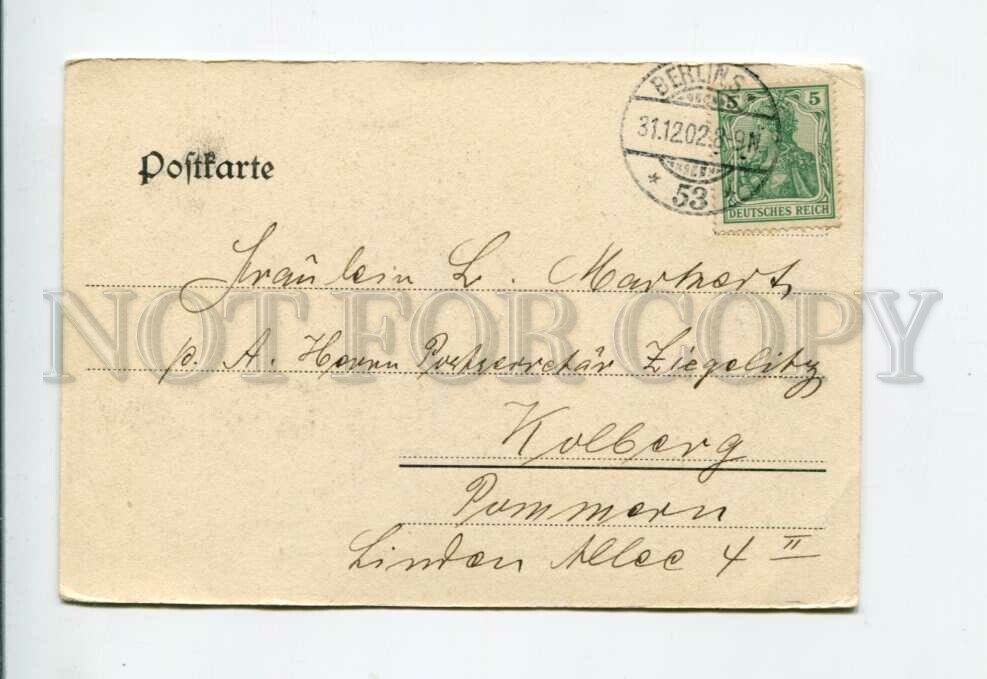 BERLIN S
31.12.02.8-9N
* 53
5 5
DEUTSCHES REICH
Postkarte
Fräulein L. Markert,
NOT FOR COPY
p. A. Herrn Postsecretär Ziegelitz
Kolberg
Pommern
Linden Allee 4 II